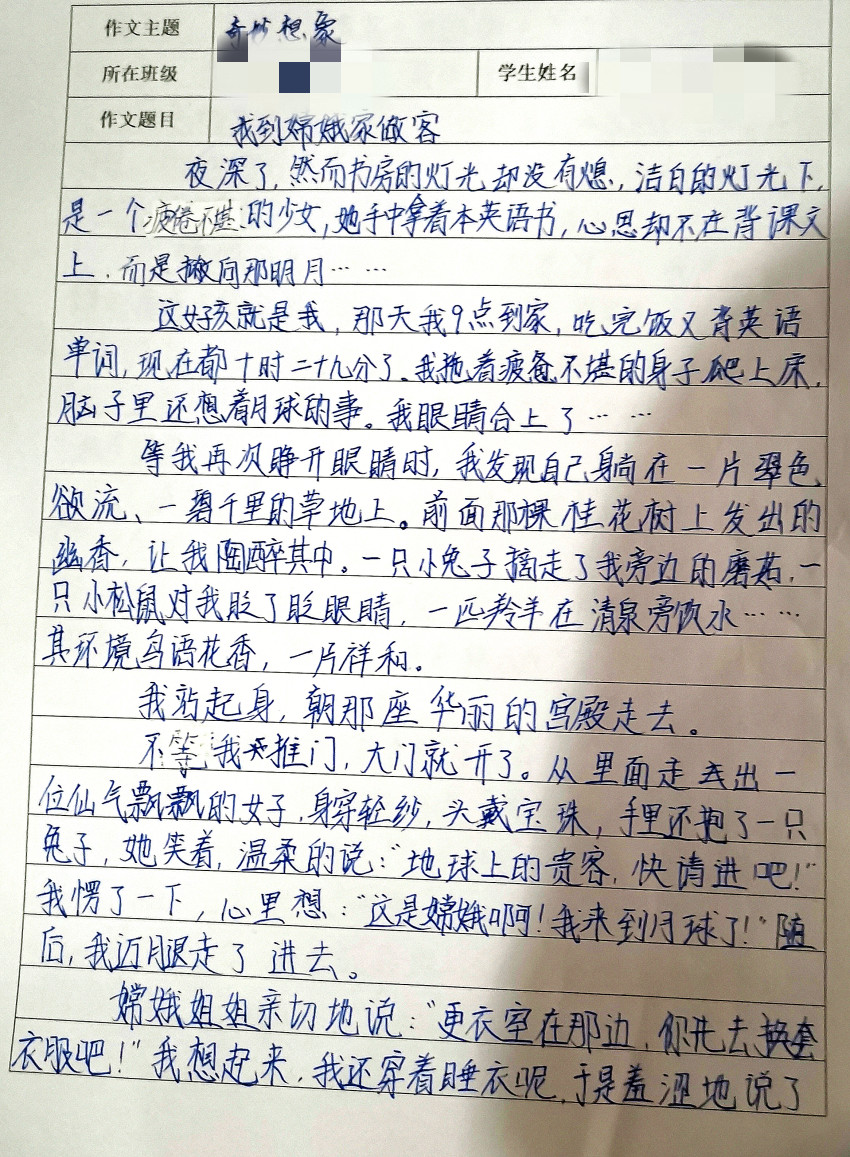 作文主题 奇妙想象
所在班级 学生姓名
作文题目 我到嫦娥家做客
夜深了，然而书房的灯光却没有熄，洁白的灯光下，
是一个疲倦不堪的少女，她手中拿着本英语书，心思却不在背课文
上，而是撇向那明月……
这女孩就是我，那天我9点到家，吃完饭又背英语
单词，现在都十时二十九分了。我拖着疲惫不堪的身子爬上床，
脑子里还想着月球的事。我眼睛合上了……
等我再次睁开眼睛时，我发现自己躺在一片翠色
欲流、一碧千里的草地上。前面那棵桂花树上发出的
幽香，让我陶醉其中。一只小兔子摘走了我旁边的磨菇，一
只小松鼠对我眨了眨眼睛，一匹羚羊在清泉旁饮水……
其环境鸟语花香，一片祥和。
我站起身，朝那座华丽的宫殿走去。
不等我推门，大门就开了。从里面走出一
位仙气飘飘的女子，身穿轻纱，头戴宝珠，手里还抱了一只
兔子，她笑着，温柔的说：“地球上的贵客，快请进吧！”
我愣了一下，心里想：“这是嫦娥啊！我来到月球了！”随
后，我迈腿走了进去。
嫦娥姐姐亲切地说：“更衣室在那边，你先去换套
衣服吧！”我想起来，我还穿着睡衣呢，于是羞涩地说了